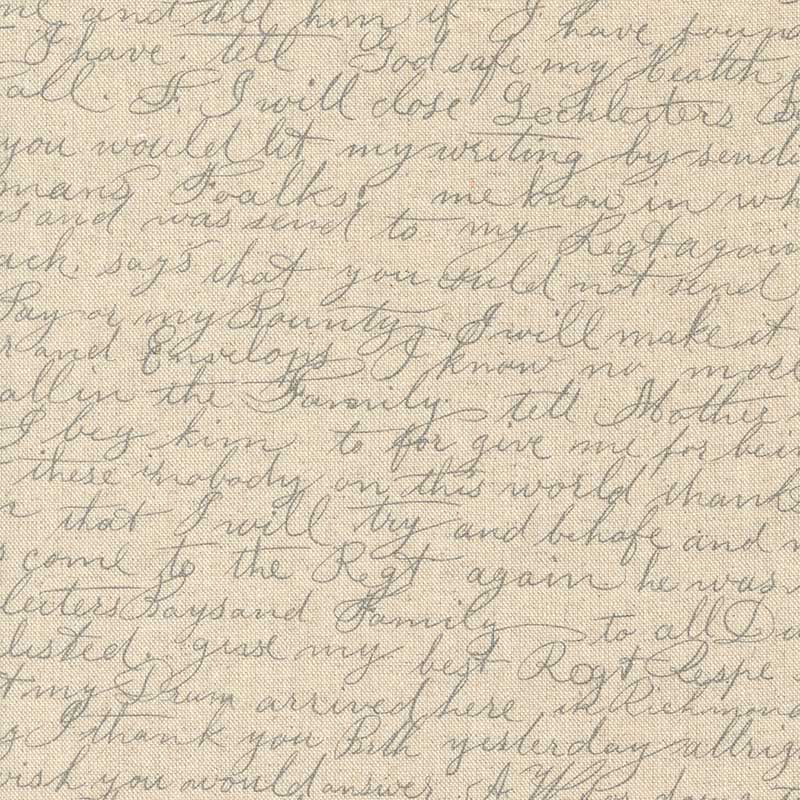 me and tell him if I have found
I have. tell God safe my Health
all. F. I will close Lechleiters
you would let my writing by sendi
mans Foalks, me know in wh
as and was send to my Regt. again
ack, says that you could not send
Pay or my Bounty, I will make it
r and Envelops I know no more
all in the Family. tell Mother
I beg him to for give me for bein
these is nobody on this world thank
that I will try and behafe and
come to the Regt again he was
leiters Boys and Family to all
listed, give my best Regt Respe
t my Drum arrived here in Richmond
g I thank you Both yesterday allrig
wish you would answer.